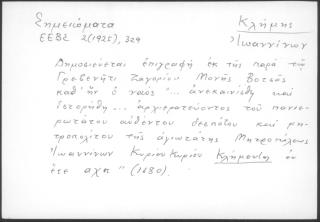 Σημειώματα
ΕΕΒΣ 2(1925), 329
Κλήμης
Ἰωαννίνων
Δημοσιεύεται ἐπιγραφή ἐκ τῆς παρά τῷ
Γρεβενήτι Ζαγορίου Μονῆς Βοτσᾶς
καθ' ἥν ὁ ναός "... ἀνεκαινίσθη καί
ἱστορήθη ... ἀρχιερατεύοντος τοῦ πανιε-
ρωτάτου αὐθέντου δεσπότου καί μη-
τροπολίτου τῆς ἁγιωτάτης Μητροπόλεως
Ἰωαννίνων Κυρίου Κυρίου Κλήμεντος ἐν
ἔτει αχπ " (1680).